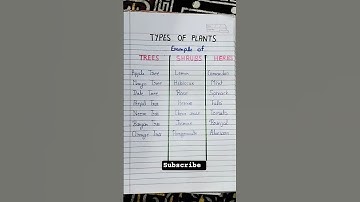 TYPES OF PLANTS
Example of
TREES SHRUBS HERBS
Apple Tree Lemon Coriander
Mango Tree Hibiscus Mint
Date Tree Rose Spinach
Peepal Tree Tulsi
Neem Tree Tomato
Banyan Tree Jasmine
Orange Tree Pomegranate
Subscribe